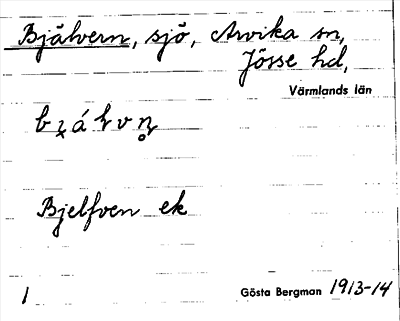 Bjälvern, sjö, Arvika sn,
Jösse hd,
Värmlands län
Bjelfven ek
1 Gösta Bergman 1913-14